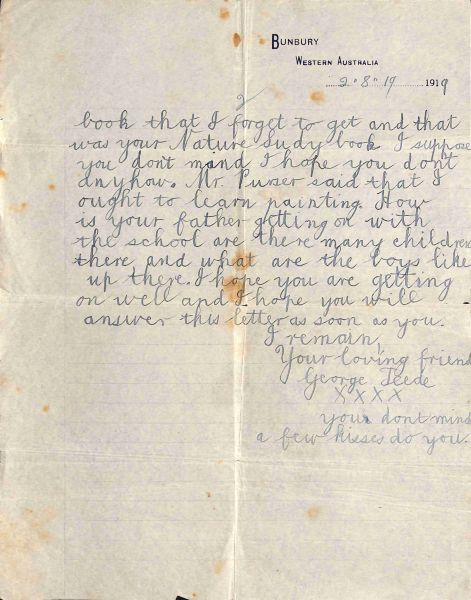 BUNBURY
WESTERN AUSTRALIA
2"8"19 1919
2
book that I forget to get and that
was your Nature Sudy book I suppose
you dont mind I hope you dont
anyhow. Mr. Purser said that I
ought to learn painting. How
is your father getting on with
the school are there many children
there and what are the boys like
up there. I hope you are getting
on well and I hope you will
answer this letter as soon as you.
I remain,
Your loving friend
George Teede
X X X X
you dont mind
a few kisses do you.